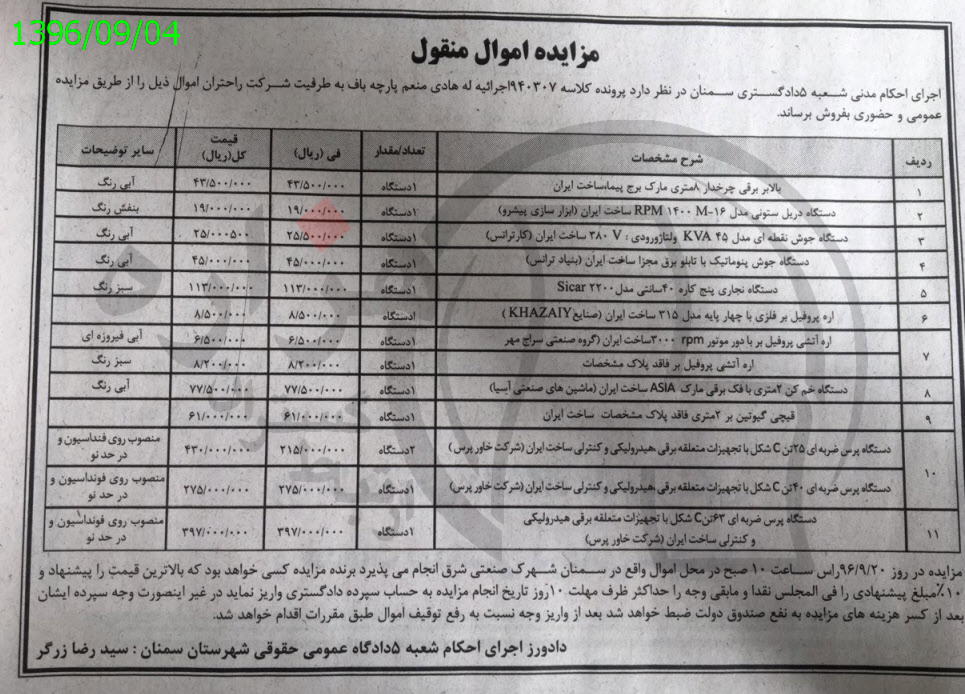 1396/09/04
مزایده اموال منقول
اجرای احکام مدنی شعبه ۵دادگستری سمنان در نظر دارد پرونده کلاسه ۹۴۰۳۰۷اجرائیه له هادی منعم پارچه باف به طرفیت شرکت راحتران اموال ذیل را از طریق مزایده
عمومی و حضوری بفروش برساند.
ردیف شرح مشخصات تعداد/مقدار فی (ریال) قیمت کل(ریال) سایر توضیحات
۱ بالابر برقی چرخدار ۸متری مارک برج پیما،ساخت ایران ۱دستگاه ۴۳/۵۰۰/۰۰۰ ۴۳/۵۰۰/۰۰۰ آبی رنگ
۲ دستگاه دریل ستونی مدل RPM ۱۴۰۰ M-۱۶ ساخت ایران (ابزار سازی پیشرو) ۱دستگاه ۱۹/۰۰۰/۰۰۰ ۱۹/۰۰۰/۰۰۰ بنفش رنگ
۳ دستگاه جوش نقطه ای مدل KVA ۴۵ ولتاژورودی : ۳۸۰ V ساخت ایران (کارترانس) ۱دستگاه ۲۵/۵۰۰/۰۰۰ ۲۵/۰۰۰۵۰۰ آبی رنگ
۴ دستگاه جوش پنوماتیک با تابلو برق مجزا ساخت ایران (بنیاد ترانس) ۱دستگاه ۴۵/۰۰۰/۰۰۰ ۴۵/۰۰۰/۰۰۰ آبی رنگ
۵ دستگاه نجاری پنج کاره ۴۰سانتی مدل۲۲۰۰ Sicar ۱دستگاه ۱۱۳/۰۰۰/۰۰۰ ۱۱۳/۰۰۰/۰۰۰ سبز رنگ
۶ اره پروفیل بر فلزی با چهار پایه مدل ۳۱۵ ساخت ایران (صنایعKHAZAIY ) ۱دستگاه ۸/۵۰۰/۰۰۰ ۸/۵۰۰/۰۰۰
۷ اره آتشی پروفیل بر با دور موتور rpm ۳۰۰۰ساخت ایران (گروه صنعتی سراج مهر ۱دستگاه ۶/۵۰۰/۰۰۰ ۶/۵۰۰/۰۰۰ آبی فیروزه ای
اره آتشی پروفیل بر فاقد پلاک مشخصات ۱دستگاه ۸/۲۰۰/۰۰۰ ۸/۲۰۰/۰۰۰ سبز رنگ
۸ دستگاه خم کن ۲متری با فک برقی مارک ASIA ساخت ایران (ماشین های صنعتی آسیا) ۱دستگاه ۷۷/۵۰۰/۰۰۰ ۷۷/۵۰۰/۰۰۰ آبی رنگ
۹ قیچی گیوتین بر ۲متری فاقد پلاک مشخصات ساخت ایران ۱دستگاه ۶۱/۰۰۰/۰۰۰ ۶۱/۰۰۰/۰۰۰
۱۰ دستگاه پرس ضربه ای ۲۵تن C شکل با تجهیزات متعلقه برقی ،هیدرولیکی و کنترلی ساخت ایران (شرکت خاور پرس) ۲دستگاه ۲۱۵/۰۰۰/۰۰۰ ۴۳۰/۰۰۰/۰۰۰ منصوب روی فنداسیون و
در حد نو
دستگاه پرس ضربه ای ۴۰تن C شکل با تجهیزات متعلقه برقی ،هیدرولیکی و کنترلی ساخت ایران (شرکت خاور پرس) ۱دستگاه ۲۷۵/۰۰۰/۰۰۰ ۲۷۵/۰۰۰/۰۰۰ منصوب روی فونداسیون و
در حد نو
۱۱ دستگاه پرس ضربه ای ۶۳تنC شکل با تجهیزات متعلقه برقی هیدرولیکی
و کنترلی ساخت ایران (شرکت خاور پرس) ۱دستگاه ۳۹۷/۰۰۰/۰۰۰ ۳۹۷/۰۰۰/۰۰۰ منصوب روی فونداسیون و
در حد نو
مزایده در روز ۹۶/۹/۲۰راس ساعت ۱۰ صبح در محل اموال واقع در سمنان شهرک صنعتی شرق انجام می پذیرد برنده مزایده کسی خواهد بود که بالاترین قیمت را پیشنهاد و
۱۰٪مبلغ پیشنهادی را فی المجلس نقدا و مابقی وجه را حداکثر ظرف مهلت ۱۰روز تاریخ انجام مزایده به حساب سپرده دادگستری واریز نماید در غیر اینصورت وجه سپرده ایشان
بعد از کسر هزینه های مزایده به نفع صندوق دولت ضبط خواهد شد بعد از واریز وجه نسبت به رفع توقیف اموال طبق مقررات اقدام خواهد شد.
دادورز اجرای احکام شعبه ۵دادگاه عمومی حقوقی شهرستان سمنان : سید رضا زرگر